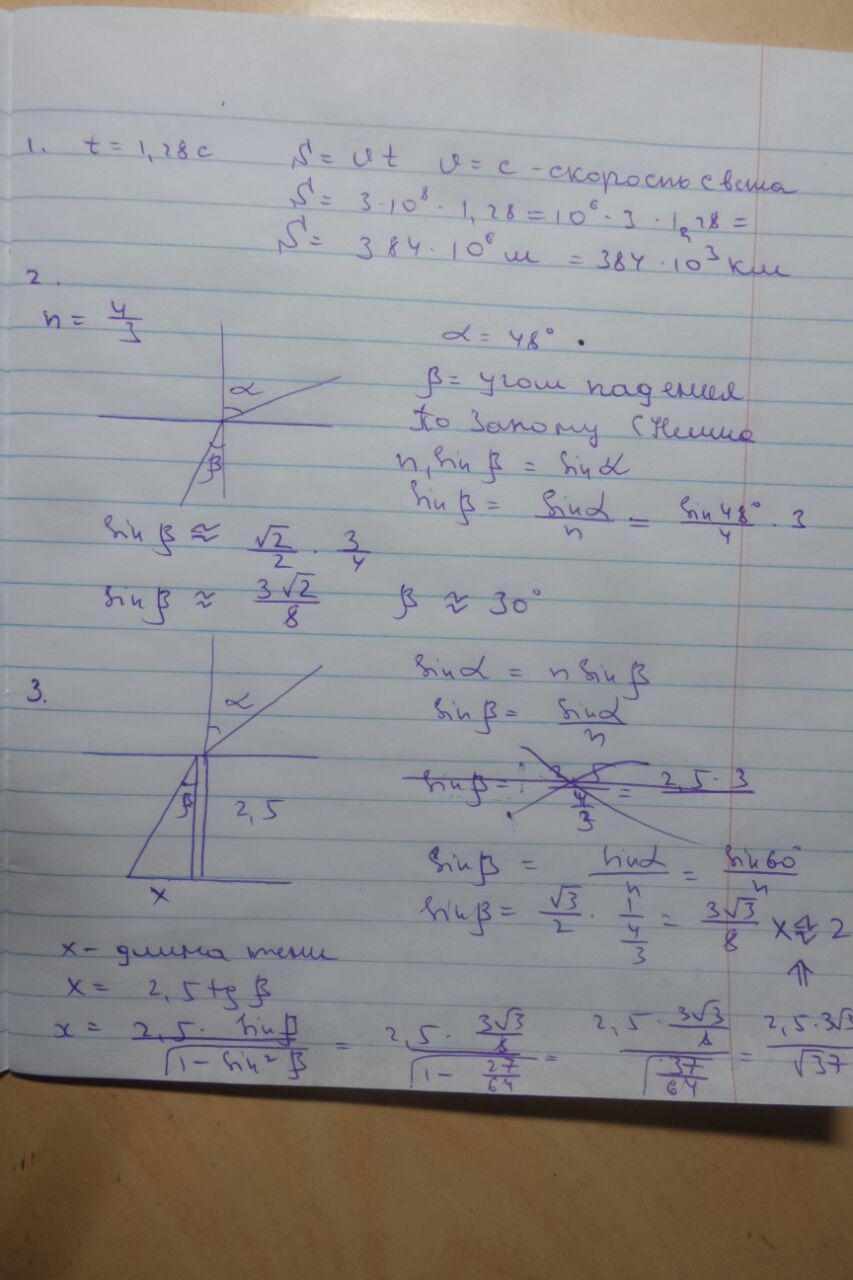 1. t = 1,28 c S = υt υ = c - скорость света
S = 3·10⁸ · 1,28 = 10⁶ · 3 · 1,28 =
S = 384 · 10⁶ м = 384 · 10³ км
2.
n = 4/3
α = 48°
α
β = угол падения
По Закону Снелиа
β
n sin β = sin α
sin β = sin α / n = sin 48° / 4 · 3
sin β ≈ √2/2 · 3/4
sin β ≈ 3√2/8 β ≈ 30°
3.
α
sin α = n sin β
sin β = sin α / n
β 2,5
x
sin β = sin α / n = sin 60° / n
sin β = √3/2 · 1/(4/3) = 3√3/8 x ≈ 2
x - длина тени
x = 2,5 tg β
x = 2,5 · sin β / √(1 - sin² β) = 2,5 · 3√3/8 / √(1 - 27/64) = 2,5 · 3√3/8 / √(37/64) = 2,5·3√3 / √37